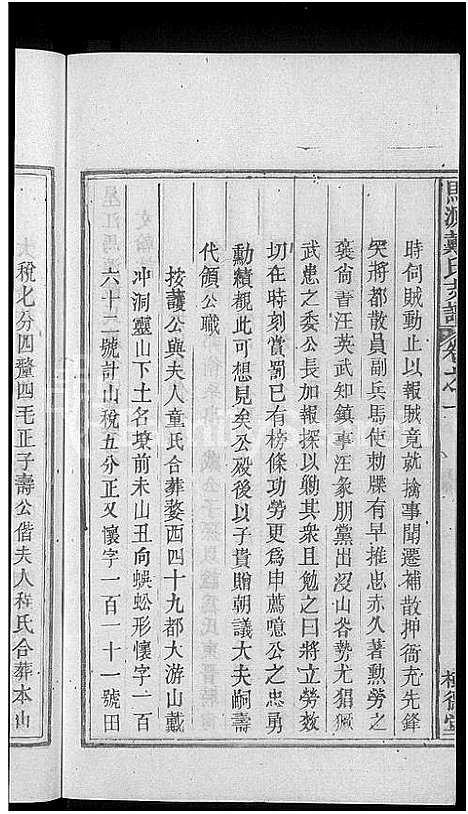 馬源戴氏支譜 卷之一
時伺賊動止以報賊竟就擒事聞遷補散押衙充先鋒
突將都散員副兵馬使勅牒有早推忠赤久著勲勞之
褒尙書汪英武知鎮事汪象朋黨出沒山谷勢尤猖獗
武患之委公長加報探以勦其衆且勉之曰將立勞效
切在時刻賞罰已有榜條功勞更爲申薦噫公之忠勇
勳績覩此可想見矣公歿後以子貴贈朝議大夫嗣壽
代領公職
按護公與夫人童氏合葬婺西四十九都大游山戴
冲洞靈山下土名塜前未山丑向蜈蚣形懷字一百
六十二號計山稅五分正又懷字一百一十一號田
稅七分四釐四毛正子壽公偕夫人程氏合葬本山